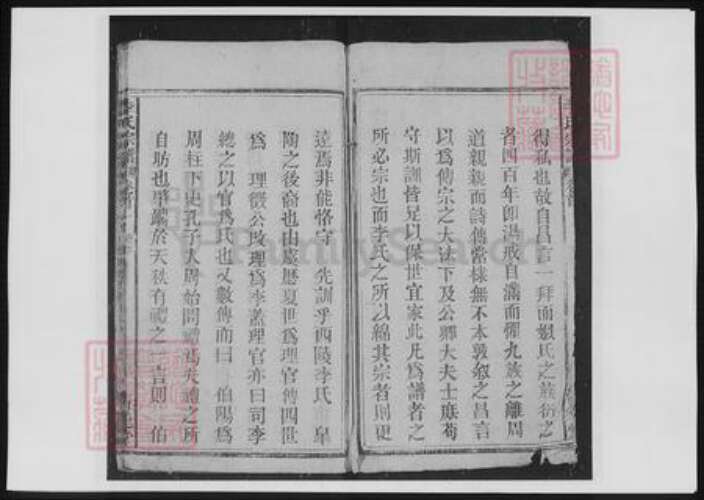 得私也故自昌言一拜而姒氏之族衍之
者四百年卽湯戒自滿而懼九族之離周
道親親而詩傳常棣無不本敦叙之昌言
以爲傳宗之大法下及公卿大夫士庶苟
守斯訓皆足以保世宜家此凡爲譜者之
所必宗也而李氏之所以綿其宗者則更
遠焉非能恪守 先訓乎西陵李氏 臯
陶之後裔也由虞歷夏世爲理官傳四世
爲 理徵公改理爲李蓋理官亦曰司李
總之以官爲氏也又數傳而曰 伯陽爲
周柱下史孔子入周始問禮焉夫禮之所
自昉也肇嚴於天秩有禮之一言則 伯
李氏宗譜
FamilySearch